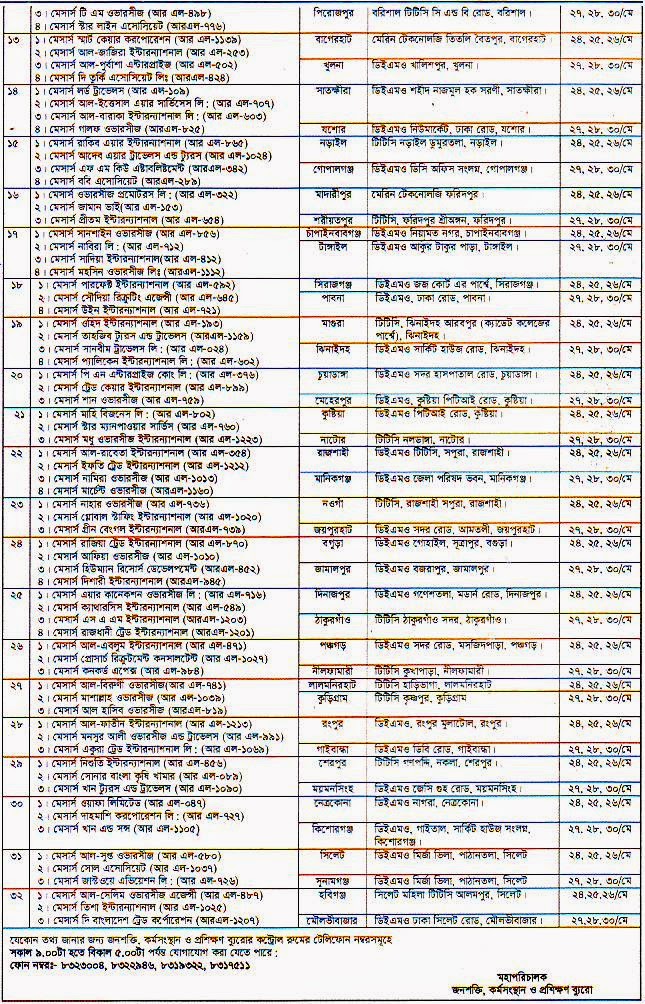 ৩। মেসার্স টি এম ওভারসীজ (আর এল-৪৯৮) পিরোজপুর বরিশাল টিটিসি সি এন্ড বি রোড, বরিশাল। ২৭, ২৮, ৩০/মে
৪। মেসার্স স্টার লাইন এসোসিয়েট (আরএল-৭৭৬)
১৩ ১। মেসার্স স্মার্ট কেয়ার করপোরেশন (আর এল-১১৩৯) বাগেরহাট মেরিন টেকনোলজি তিতলি বৈতপুর, বাগেরহাট ২৪, ২৫, ২৬/মে
২। মেসার্স আল-জাজিরা ইন্টারন্যাশনাল (আর এল-২৫৩)
৩। মেসার্স আল-পূর্বাশা এন্টারপ্রাইজ (আর এল-৫০২) খুলনা ডিইএমও খালিশপুর, খুলনা। ২৭, ২৮, ৩০/মে
৪। মেসার্স দি তুর্কি এসোসিয়েট লিঃ (আরএল-৪২৪)
১৪ ১। মেসার্স লর্ড ট্রাভেলস (আর এল-১০৯) সাতক্ষীরা ডিইএমও শহীদ নাজমুল হক সরণী, সাতক্ষীরা। ২৪, ২৫, ২৬/মে
২। মেসার্স আল-ইত্তেসাল এয়ার সার্ভিসেস লি: (আর এল-৭০৭)
৩। মেসার্স আল-বারাকা ইন্টারন্যাশনাল লি: (আর এল-৬০৩)
৪। মেসার্স গালফ ওভারসীজ (আরএল-৮২৫) যশোর ডিইএমও নিউমার্কেট, ঢাকা রোড, যশোর। ২৭, ২৮, ৩০/মে
১৫ ১। মেসার্স রাকিব এয়ার ইন্টারন্যাশনাল (আর এল-৮৬৫) নড়াইল টিটিসি নড়াইল ডুমুরতলা, নড়াইল। ২৪, ২৫, ২৬/মে
২। মেসার্স আদেব এয়ার ট্রাভেলস এন্ড ট্যুরস (আর এল-১০২৪)
৩। মেসার্স এফ এম কিউ এষ্টাবলিষ্টমেন্ট (আর এল-৩৪২) গোপালগঞ্জ ডিইএমও ডিসি অফিস সংলগ্ন, গোপালগঞ্জ। ২৭, ২৮, ৩০/মে
৪। মেসার্স ববি এসোসিয়েট (আরএল-২৮৯)
১৬ ১। মেসার্স ওভারসীজ প্রমোটরস লি: (আর এল-৩২২) মাদারীপুর মেরিন টেকনোলজি ফরিদপুর। ২৪, ২৫, ২৬/মে
২। মেসার্স জামান ভাই(আর এল-১৫৩)
৩। মেসার্স প্রীতম ইন্টারন্যাশনাল (আর এল-৬৫৪) শরীয়তপুর টিটিসি, ফরিদপুর শ্রীঅঙ্গন, ফরিদপুর। ২৭, ২৮, ৩০/মে
১৭ ১। মেসার্স সানশাইন ওভারসীজ (আর এল-৮৫৬) চাঁপাইনবাবগঞ্জ ডিইএমও নিয়ামত নগর, চাপাইনবাবগঞ্জ। ২৪, ২৫, ২৬/মে
২। মেসার্স নাবিরা লি: (আর এল-৭১২) টাঙ্গাইল ডিইএমও আকুর টাকুর পাড়া, টাঙ্গাইল। ২৭, ২৮, ৩০/মে
৩। মেসার্স সাদিয়া ইন্টারন্যাশনাল(আর এল-৪১২)
৪। মেসার্স মহসিন ওভারসীজ লিঃ (আরএল-১১১২)
১৮ ১। মেসার্স পারফেক্ট ইন্টারন্যাশনাল (আর এল-৫৯২) সিরাজগঞ্জ ডিইএমও জজ কোর্ট এর পার্শ্বে, সিরাজগঞ্জ। ২৪, ২৫, ২৬/মে
২। মেসার্স সৌদিয়া রিক্রুটিং এজেন্সী (আর এল-৬৪৫) পাবনা ডিইএমও, ঢাকা রোড, পাবনা। ২৭, ২৮, ৩০/মে
৪। মেসার্স উইন ইন্টারন্যাশনাল (আর এল-৭২১)
১৯ ১। মেসার্স ওহিদ ইন্টারন্যাশনাল (আর এল-১৯৩) মাগুরা টিটিসি, ঝিনাইদহ আরবপুর (ক্যাডেট কলেজের ২৪, ২৫, ২৬/মে
২। মেসার্স তাহজিব ট্যুরস এন্ড ট্রাভেলস (আর এল-১১৫৯) পার্শ্বে), ঝিনাইদহ।
৩। মেসার্স সানবীম ট্রাভেলস লি: (আর এল-০২৪) ঝিনাইদহ ডিইএমও সার্কিট হাউজ রোড, ঝিনাইদহ। ২৭, ২৮, ৩০/মে
৪। মেসার্স প্যালিকেন ইন্টারন্যাশনাল লি: (আর এল-৬০২)
২০ ১। মেসার্স পি এন এন্টারপ্রাইজ কোং লি: (আর এল-৩৭৬) চুয়াডাঙ্গা ডিইএমও সদর হাসপাতাল রোড, চুয়াডাঙ্গা। ২৪, ২৫, ২৬/মে
২। মেসার্স ট্রেড কেয়ার ইন্টারন্যাশনাল (আর এল-৮৯৯)
৩। মেসার্স শান ওভারসীজ (আর এল-৭৫৯) মেহেরপুর ডিইএমও, কুষ্টিয়া পিটিআই রোড, কুষ্টিয়া। ২৭, ২৮, ৩০/মে
২১ ১। মেসার্স মাহি বিজনেস লি: (আর এল-৮০২) কুষ্টিয়া ডিইএমও পিটিআই রোড, কুষ্টিয়া। ২৪, ২৫, ২৬/মে
২। মেসার্স স্টার ম্যানপাওয়ার সার্ভিস (আর এল-৭৬০)
৩। মেসার্স মধু ওভারসীজ ইন্টারন্যাশনাল (আর এল-১২২৩) নাটোর টিটিসি নলডাঙ্গা, নাটোর। ২৭, ২৮, ৩০/মে
২২ ১। মেসার্স আল-রাবেতা ইন্টারন্যাশনাল (আর এল-৩৫৪) রাজশাহী ডিইএমও টিটিসি, সপুরা, রাজশাহী। ২৪, ২৫, ২৬/মে
২। মেসার্স ইফতি ট্রেড ইন্টারন্যাশনাল (আর এল-১২১২)
৩। মেসার্স নামিরা ওভারসীজ (আর এল-১০১৩) মানিকগঞ্জ ডিইএমও জেলা পরিষদ ভবন, মানিকগঞ্জ। ২৭, ২৮, ৩০/মে
৪। মেসার্স মার্চেন্ট ওভারসীজ (আরএল-১১৬০)
২৩ ১। মেসার্স নাহার ওভারসীজ (আর এল-৭৩৬) নওগাঁ টিটিসি, রাজশাহী সপুরা, রাজশাহী। ২৪, ২৫, ২৬/মে
২। মেসার্স গ্লোবাল স্টাফিং ইন্টারন্যাশনাল (আর এল-১০২০)
৩। মেসার্স গ্রীন বেংগল ইন্টারন্যাশনাল (আরএল-৭৩৯) জয়পুরহাট ডিইএমও সদর রোড, আমতলী, জয়পুরহাট। ২৭, ২৮, ৩০/মে
২৪ ১। মেসার্স রাজিয়া ট্রেড ইন্টারন্যাশনাল (আর এল-৮৭০) বগুড়া ডিইএমও গোহাইল, সূত্রাপুর, বগুড়া। ২৪, ২৫, ২৬/মে
২। মেসার্স আফিয়া ওভারসীজ (আর এল-১০১০)
৩। মেসার্স হিউম্যান রিসোর্স ডেভেলপমেন্ট (আরএল-৪৫২) জামালপুর ডিইএমও বজরাপুর, জামালপুর। ২৭, ২৮, ৩০/মে
৪। মেসার্স দিশারী ইন্টারন্যাশনাল (আরএল-৯৪৫)
২৫ ১। মেসার্স এয়ার কানেকশন ওভারসীজ লি: (আর এল-৭১৬) দিনাজপুর ডিইএমও গণেশতলা, মডার্ন রোড, দিনাজপুর। ২৪, ২৫, ২৬/মে
২। মেসার্স ক্যাথারসিস ইন্টারন্যাশনাল (আর এল-৫৪৯)
৩। মেসার্স এস এ এম ইন্টারন্যাশনাল (আর এল-১২০৩) ঠাকুরগাঁও টিটিসি ঠাকুরগাঁও সদর, ঠাকুরগাঁও। ২৭, ২৮, ৩০/মে
৪। মেসার্স রাজধানী ট্রেড ইন্টারন্যাশনাল (আরএল-১২০১)
২৬ ১। মেসার্স আল-এবলুম ইন্টারন্যাশনাল (আর এল-৪৭১) পঞ্চগড় ডিইএমও সদর রোড, মসজিদপাড়া, পঞ্চগড়। ২৪, ২৫, ২৬/মে
২। মেসার্স প্রোসার্চ রিক্রুটমেন্ট কনসালটেন্ট (আর এল-১০২৭)
৩। মেসার্স কনকর্ড এপেক্স (আর এল-৯৮৪) নীলফামারী টিটিসি কুখাপাড়া, নীলফামারী। ২৭, ২৮, ৩০/মে
২৭ ১। মেসার্স আল-বিরুণী ওভারসীজ(আর এল-৭৪১) লালমনিরহাট টিটিসি হাড়িভাগা, লালমনিরহাট ২৪, ২৫, ২৬/মে
২। মেসার্স মাশাল্লাহ ওভারসীজ (আর এল-১০৩৯) কুড়িগ্রাম টিটিসি কৃষ্ণপুর, কুড়িগ্রাম ২৭, ২৮, ৩০/মে
৩। মেসার্স আল হাসিব ওভারসীজ (আর এল-৮১৯)
২৮ ১। মেসার্স আল-ফাতীন ইন্টারন্যাশনাল (আর এল-১২১৩) রংপুর ডিইএমও, রংপুর মুলাটোল, রংপুর। ২৪, ২৫, ২৬/মে
২। মেসার্স মনসুর আলী ওভারসীজ এন্ড ট্রাভেলস (আর এল-৯৯১)
৩। মেসার্স একুরা ট্রেড ইন্টারন্যাশনাল লি: (আর এল-১০৬৯) গাইবান্ধা ডিইএমও ডিবি রোড, গাইবান্ধা। ২৭, ২৮, ৩০/মে
২৯ ১। মেসার্স নিওতি ইন্টারন্যাশনাল (আর এল-৪৫৬) শেরপুর টিটিসি গণপদ্দি, নকলা, শেরপুর। ২৪, ২৫, ২৬/মে
২। মেসার্স সোনার বাংলা কৃষি খামার (আর এল-০৮৯)
৩। মেসার্স খান ট্যুরস এন্ড ট্রাভেলস (আর এল-১০৯০) ময়মনসিংহ ডিইএমও জেসি গুহ রোড, ময়মনসিংহ। ২৭, ২৮, ৩০/মে
৩০ ১। মেসার্স ওয়াফা লিমিটেড (আর এল-০৪৭) নেত্রকোনা ডিইএমও নাগরা, নেত্রকোনা। ২৪, ২৫, ২৬/মে
২। মেসার্স দাহমাশি করপোরেশন লি: (আর এল-৭২৭)
৩। মেসার্স খান এন্ড সন্স (আর এল-১১০৫) কিশোরগঞ্জ ডিইএমও, গাইতাল, সার্কিট হাউজ সংলগ্ন, ২৭, ২৮, ৩০/মে
কিশোরগঞ্জ।
৩১ ১। মেসার্স আল-সুপ্ত ওভারসীজ (আর এল-৫৮০) সিলেট ডিইএমও মির্জা ভিলা, পাঠানতলা, সিলেট ২৪, ২৫, ২৬/মে
২। মেসার্স সোল এসোসিয়েট (আর এল-১০৩৭)
৩। মেসার্স জাস্টওয়ে এভিয়েশন লি: (আর এল-৭২৬) সুনামগঞ্জ ডিইএমও মির্জা ভিলা, পাঠানতলা, সিলেট। ২৭, ২৮, ৩০/মে
৩২ ১। মেসার্স আল-সেলিম ওভারসীজ এজেন্সী (আর এল-৪৮৭) হবিগঞ্জ সিলেট মহিলা টিটিসি আলমপুর, সিলেট। ২৪,২৫,২৬/মে
২। মেসার্স তিশা ইন্টারন্যাশনাল (আর এল-১০২৫)
৩। মেসার্স দি বাংলাদেশ ট্রেড কর্পোরেশন (আর এল-১২০৭) মৌলভীবাজার ডিইএমও ঢাকা সিলেট রোড, মৌলভীবাজার। ২৭,২৮,৩০/মে
যেকোন তথ্য জানার জন্য জনশক্তি, কর্মসংস্থান ও প্রশিক্ষণ ব্যুরোর কন্ট্রোল রুমের টেলিফোন নম্বরসমূহে
সকাল ৯.০০টা হতে বিকাল ৫.০০টা পর্যন্ত যোগাযোগ করা যেতে পারে:
ফোন নম্বরঃ- ৮৩২৩০০৪, ৮৩২২৯৪৬, ৮৩১৯৩২২, ৮৩১৭৫১১
মহাপরিচালক
জনশক্তি, কর্মসংস্থান ও প্রশিক্ষণ ব্যুরো